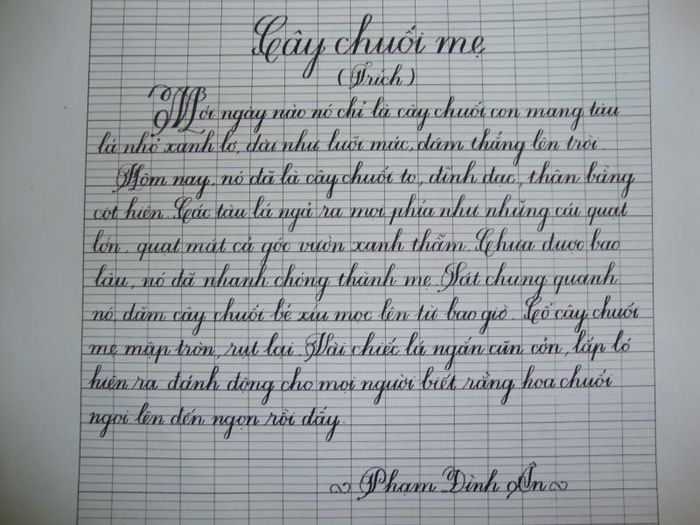 Cây chuối mẹ
(Trích)
Mới ngày nào nó chỉ là cây chuối con mang tàu
lá nhỏ xanh lơ, dài như luỡi mác, dâm thẳng lên trời.
Hôm nay, nó đã là cây chuối to, đĩnh đạc, thân bằng
cột hiên. Các tàu lá ngả ra mọi phía như những cái quạt
lớn, quạt mát cả góc vườn xanh thẫm. Chưa được bao
lâu, nó đã nhanh chóng thành mẹ. Sát chung quanh
nó, dăm cây chuối bé xíu mọc lên từ bao giờ. Cổ cây chuối
mẹ mập tròn, rụt lại. Vài chiếc lá ngắn cũn cỡn, lấp ló
hiện ra đánh động cho mọi người biết rằng hoa chuối
ngoi lên đến ngọn rồi đấy.
Phạm Đình Ân